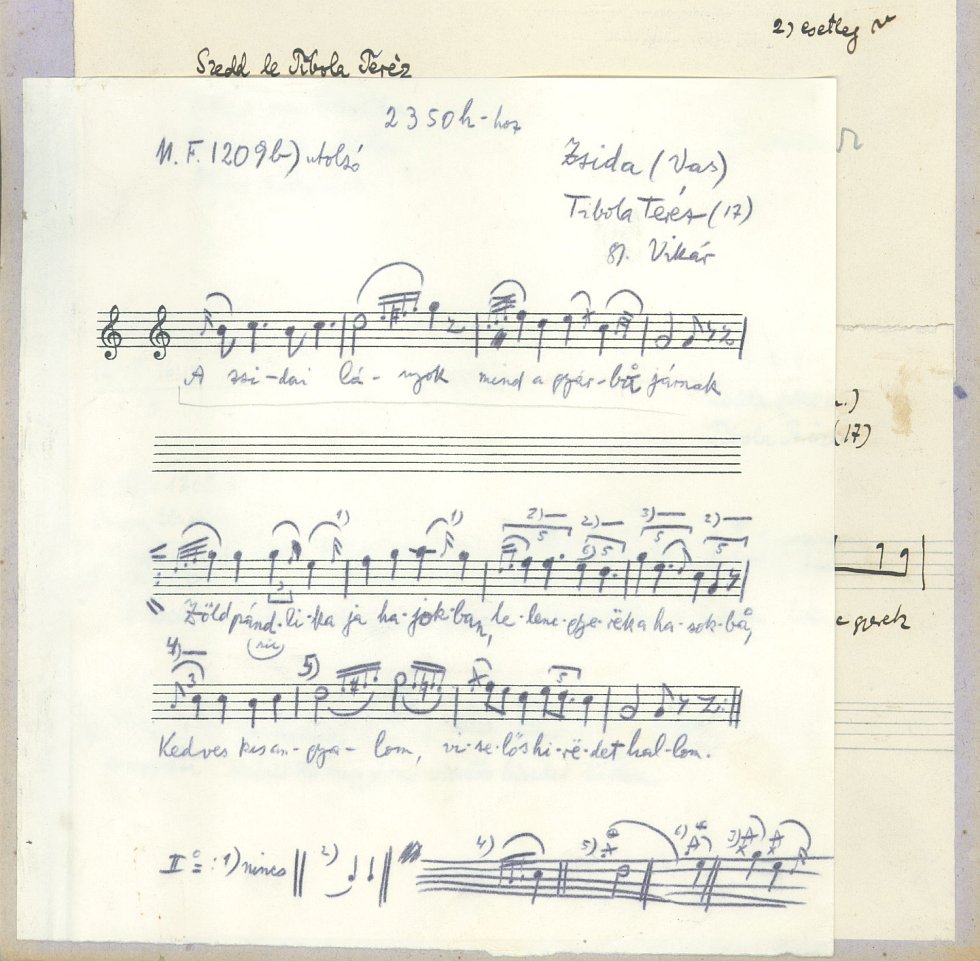 2) esetleg
Szedd le Tibola Teréz
2350h-hoz
M.F. 1209b) utolsó
Zsida (Vas)
Tibola Teréz (17)
gy. Vikár
A zsi-dai lá-nyok mind a gyár-bå járnak
(17)
1) 1) 2) 5 2) 5 3) 5 2) 5
6)
3
Zöld pánd-li-ka ja ha-jok-ban, le-lenc-gye-rëk a ha-sok-bå,
(sic)
gyerek
4) 3 5) 5
Kedves kisan-gya-lom, vi-se-lős hi-rë-det hal-lom.
II º =: 1) nincs 2) 4) 5) 6) 3)